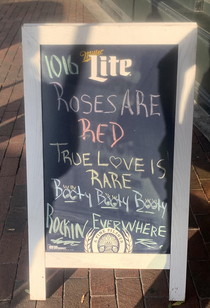 1016 Miller Lite
ROSES ARE
RED
TRUE LOVE IS
RARE
Booty Booty Booty
ROCKIN EVERWHERE